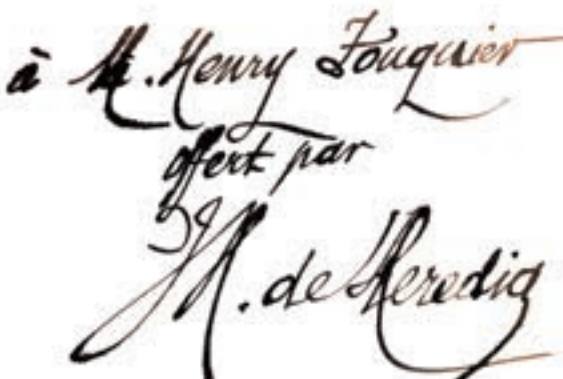 à M. Henry Fouquier
offert par
JM. de Heredia